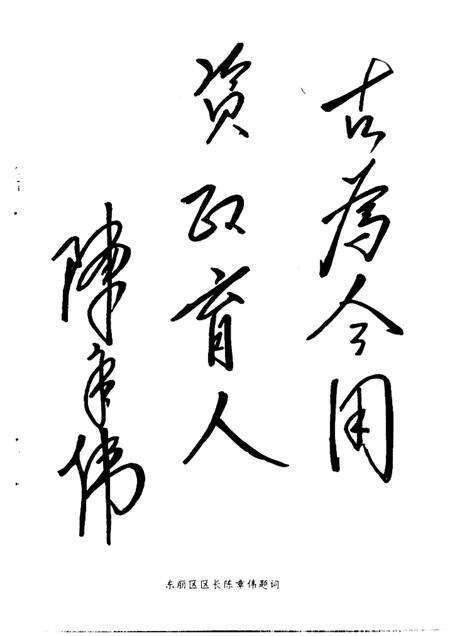 古為今用
资政育人
陈章伟
东丽区区长陈章伟题词